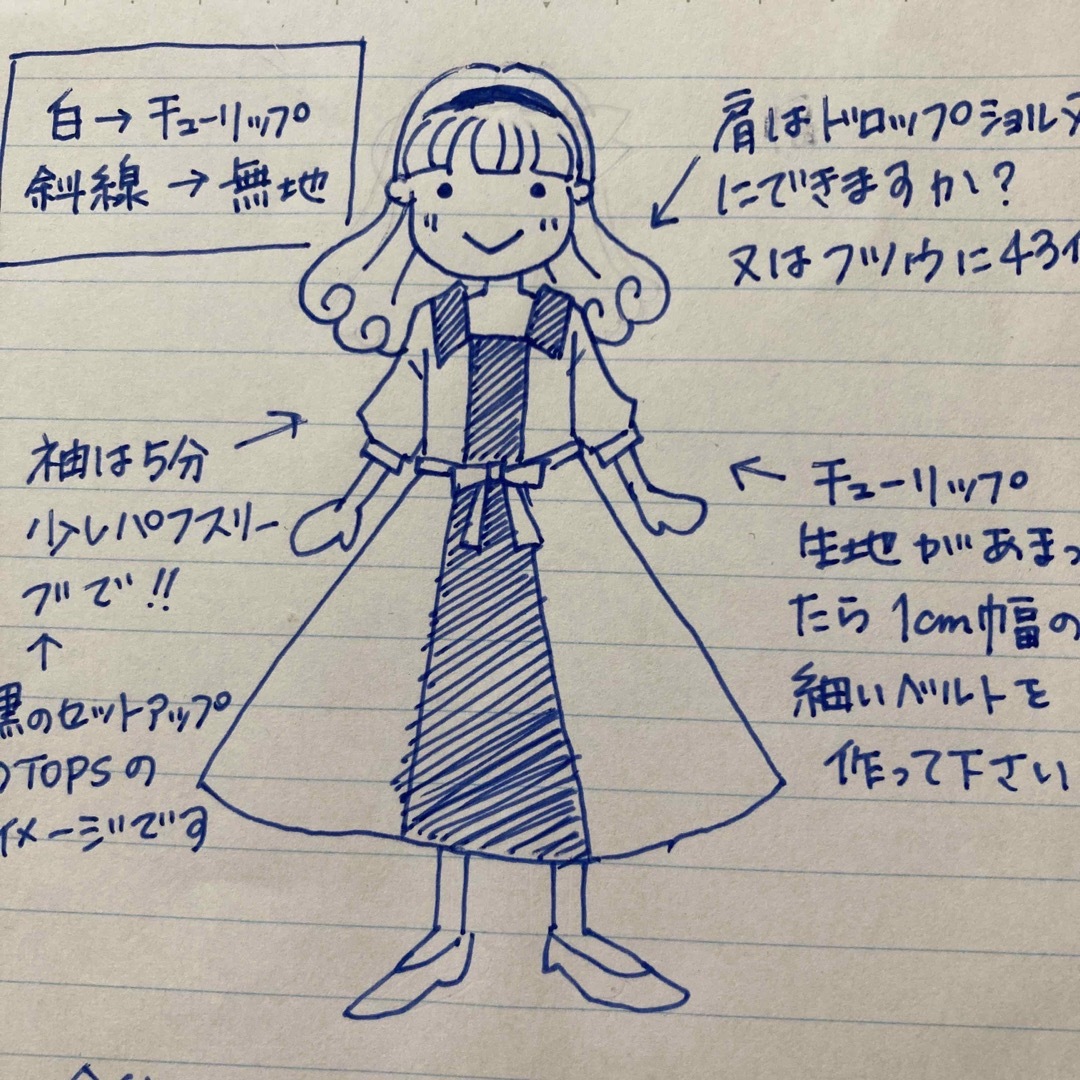 白→チューリップ
斜線→無地
肩はドロップショルダ
にできますか?
又はフツウに43
袖は5分
少しパフスリー
ブで!!
↑
黒のセットアップ
TOPSの
イメージです
← チューリップ
生地があまっ
たら1cm幅の
細いベルトを
作って下さい